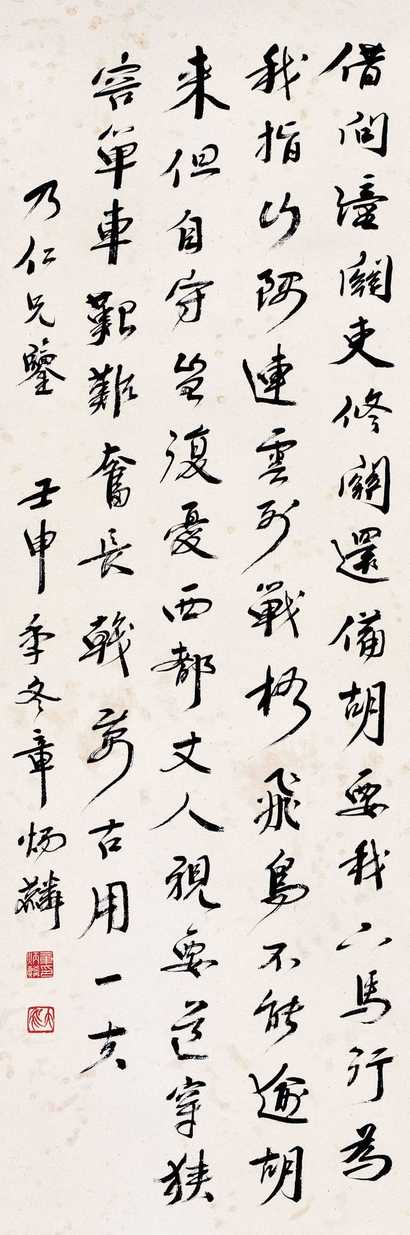 借問潼關吏修關還備胡要我下馬行為
我指山隅連雲列戰格飛鳥不能逾胡
来但自守豈復憂西都丈人視要處窄狹
容單車艱難奮長戟萬古用一夫
乃仁兄鑒 壬申季冬章炳麟